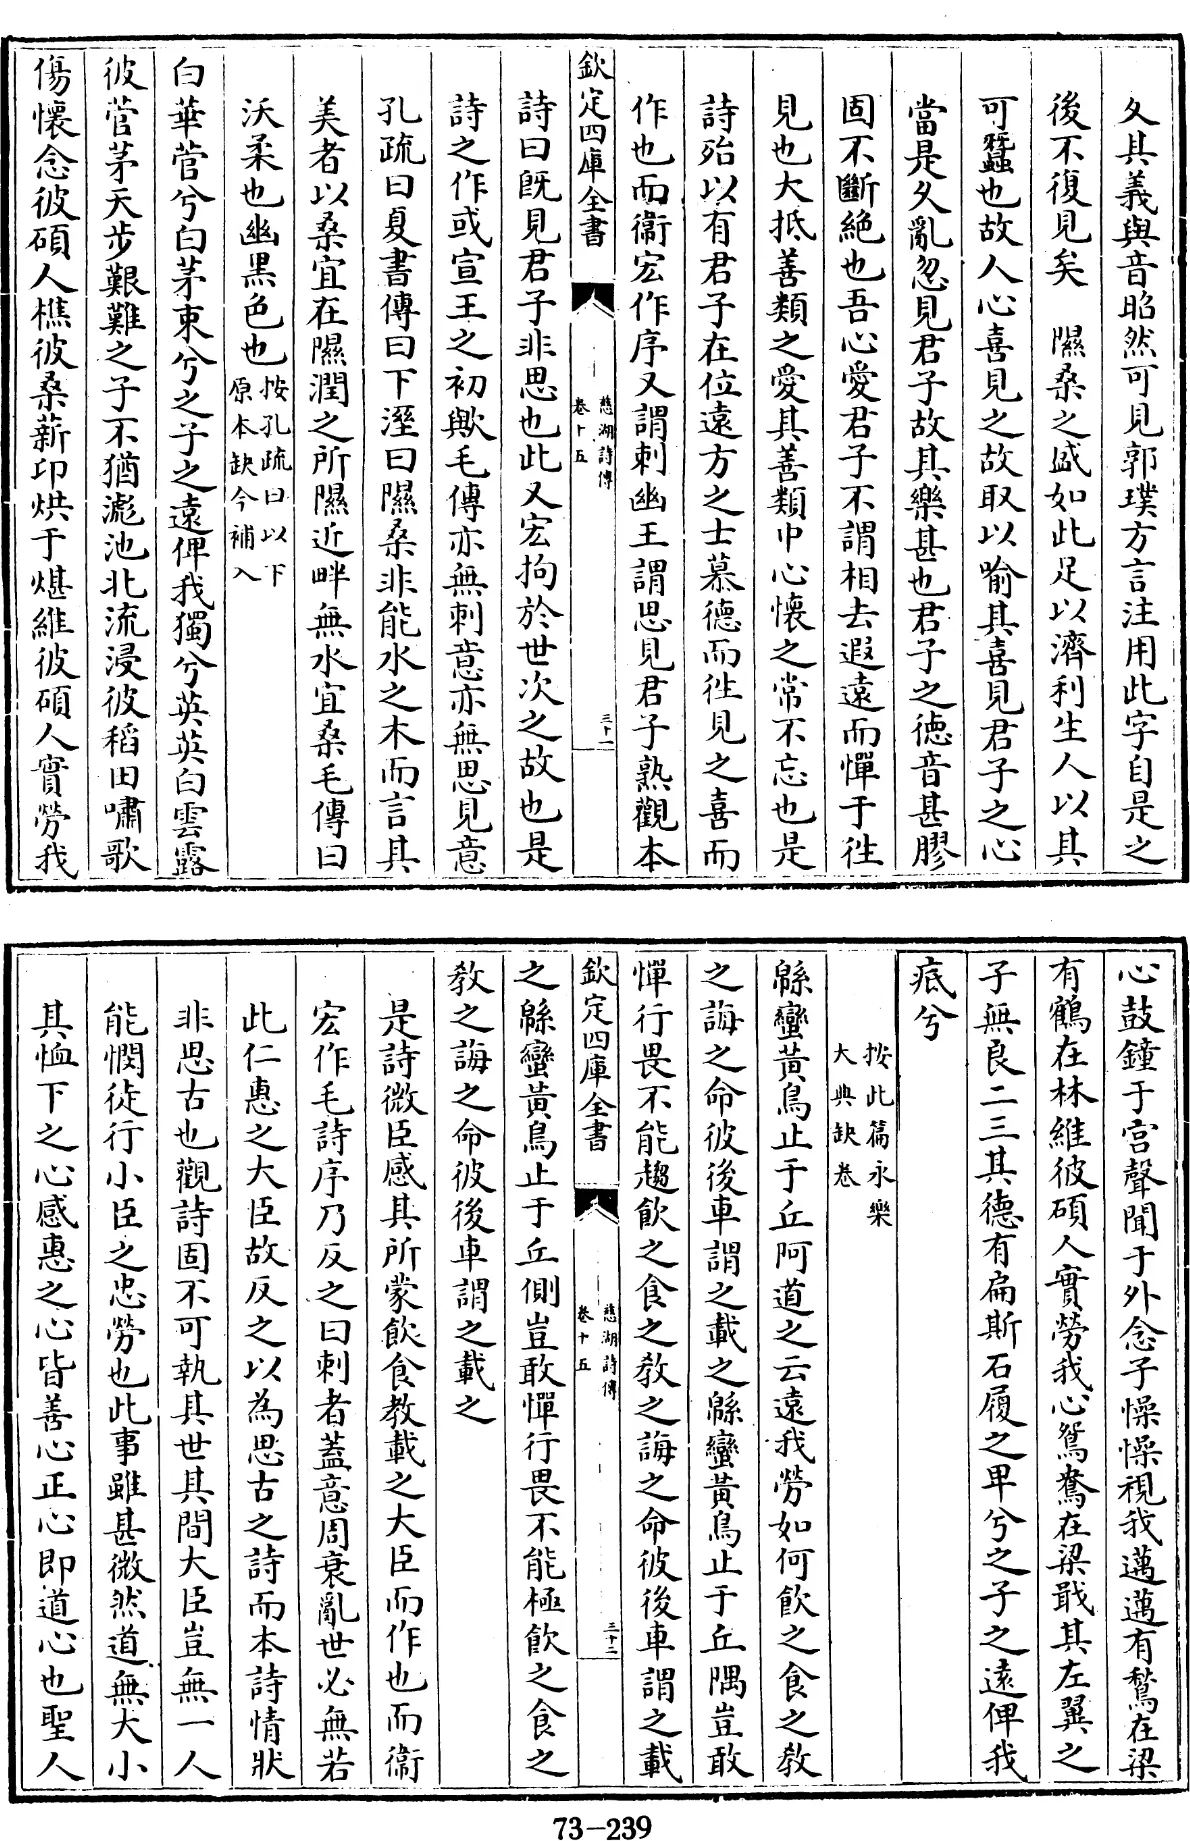 夂其義與音昭然可見郭璞方言注用此字自是之
後不復見矣　隰桑之盛如此足以濟利生人以其
可蠶也故人心喜見之故取以喻其喜見君子之心
當是夂亂忽見君子故其樂甚也君子之德音甚膠
固不斷絶也吾心愛君子不謂相去遐遠而憚于徃
見也大抵善類之愛其善類中心懷之常不忘也是
詩殆以有君子在位遠方之士慕德而徃見之喜而
作也而衞宏作序又謂刺幽王謂思見君子熟觀本
欽定四庫全書
慈湖詩傳
卷十五
三十一
詩曰旣見君子非思也此又宏拘於世次之故也是
詩之作或宣王之初歟毛傳亦無刺意亦無思見意
孔疏曰夏書傳曰下溼曰隰桑非能水之木而言其
美者以桑宜在隰潤之所隰近畔無水宜桑毛傳曰
沃柔也幽黒色也按孔疏曰以下
原本缺今補入
白華菅兮白茅束兮之子之遠俾我獨兮英英白雲露
彼菅茅天步艱難之子不猶滮池北流浸彼稻田嘯歌
傷懷念彼碩人樵彼桑薪卬烘于煁維彼碩人實勞我
心鼓鐘于宫聲聞于外念子懆懆視我邁邁有鶖在梁
有鶴在林維彼碩人實勞我心鴛鴦在梁戢其左翼之
子無良二三其德有扁斯石履之卑兮之子之遠俾我
疷兮
按此篇永樂
大典缺卷
緜蠻黄鳥止于丘阿道之云遠我勞如何飲之食之敎
之誨之命彼後車謂之載之緜蠻黄鳥止于丘隅豈敢
憚行畏不能趨飲之食之敎之誨之命彼後車謂之載
欽定四庫全書
慈湖詩傳
卷十五
三十二
之緜蠻黄鳥止于丘側豈敢憚行畏不能極飲之食之
敎之誨之命彼後車謂之載之
是詩微臣感其所蒙飲食教載之大臣而作也而衞
宏作毛詩序乃反之曰刺者蓋意周衰亂世必無若
此仁惠之大臣故反之以為思古之詩而本詩情狀
非思古也觀詩固不可執其世其間大臣豈無一人
能憫徒行小臣之忠勞也此事雖甚微然道無大小
其恤下之心感惠之心皆善心正心即道心也聖人
73-239